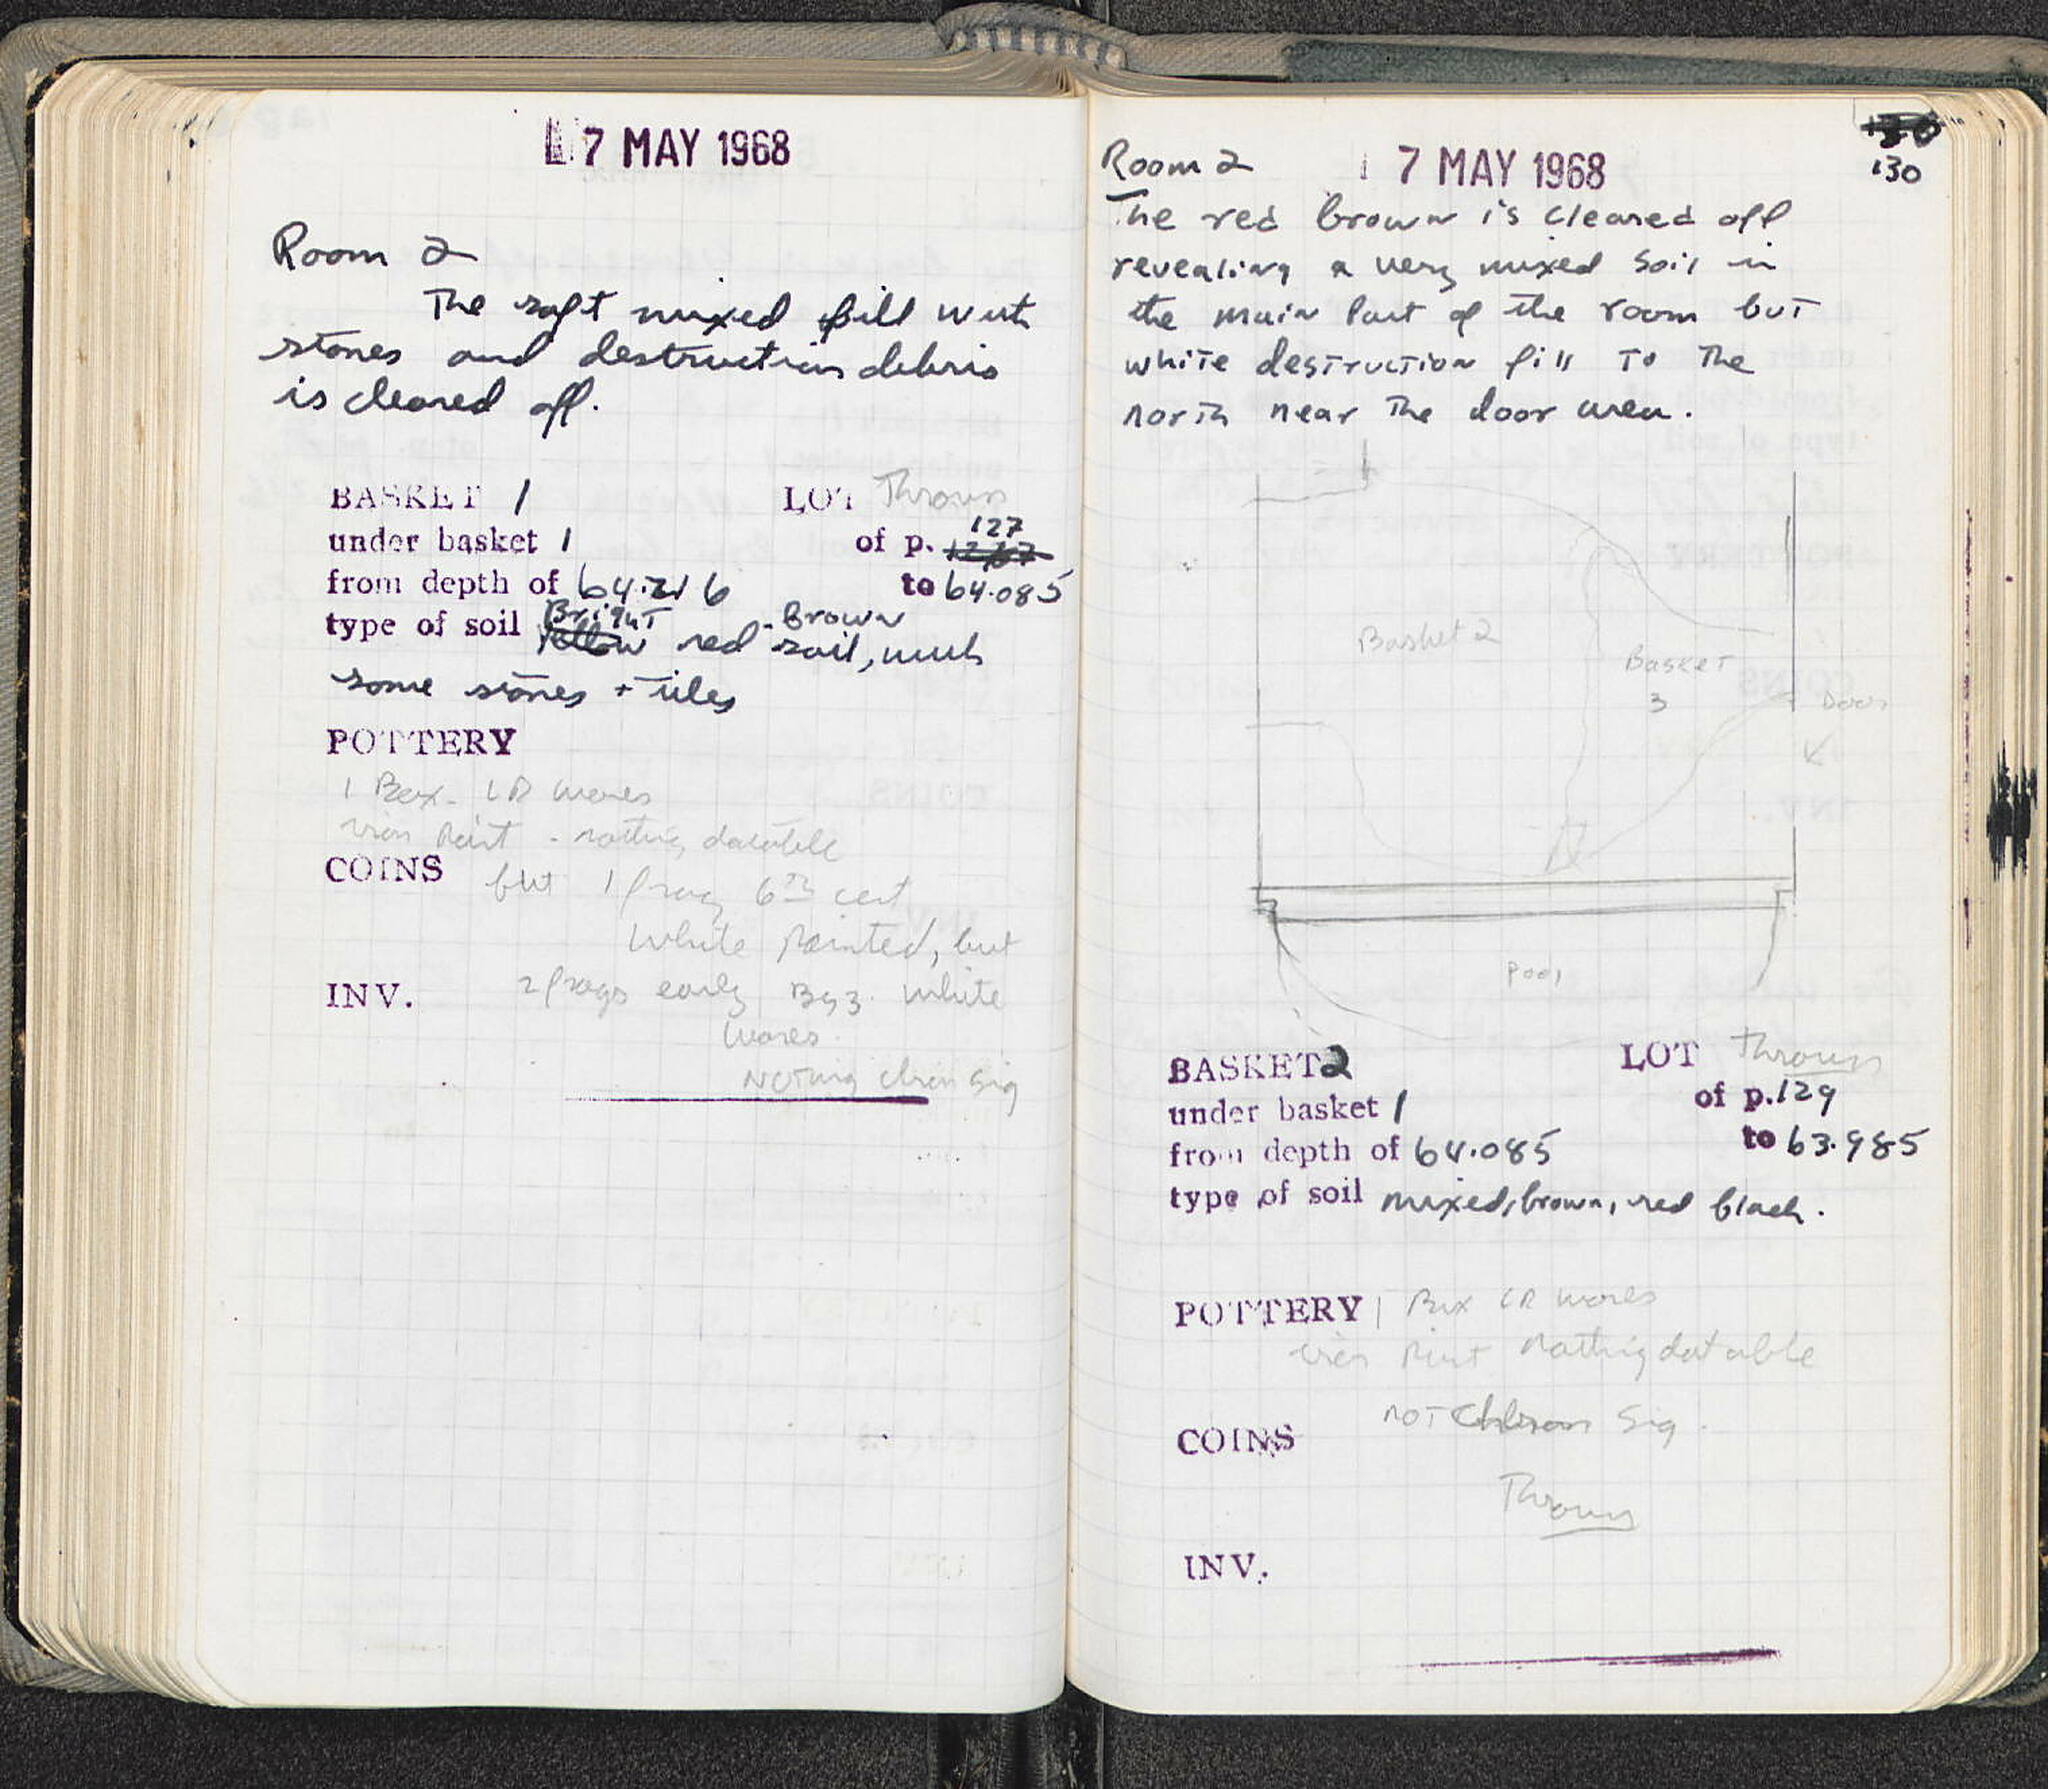 7 MAY 1968
Room 2
The soft mixed fill with
stones and destruction debris
is cleared off.
BASKET 1 LOT Thrown
under basket 1 of p. 127
from depth of 64.216 to 64.085
type of soil Bright red-brown
soil, with
some stones + tiles
POTTERY
1 Box - LR wares
nothing datable
COINS but 1 frag 6th cent
White Painted, but
INV. 2 frags early Byz. White
Wares.
Nothing chron sig
130
Room 2 7 MAY 1968
The red brown is cleared off
revealing a very mixed soil in
the main part of the room but
white destruction fill to the
north near the door area.
Basket 2
Basket
3
Door
Pool
BASKET 2 LOT Thrown
under basket 1 of p. 129
from depth of 64.085 to 63.985
type of soil mixed, brown, red black.
POTTERY 1 Box LR wares
nothing datable
not Chron Sig.
COINS
Thrown
INV.